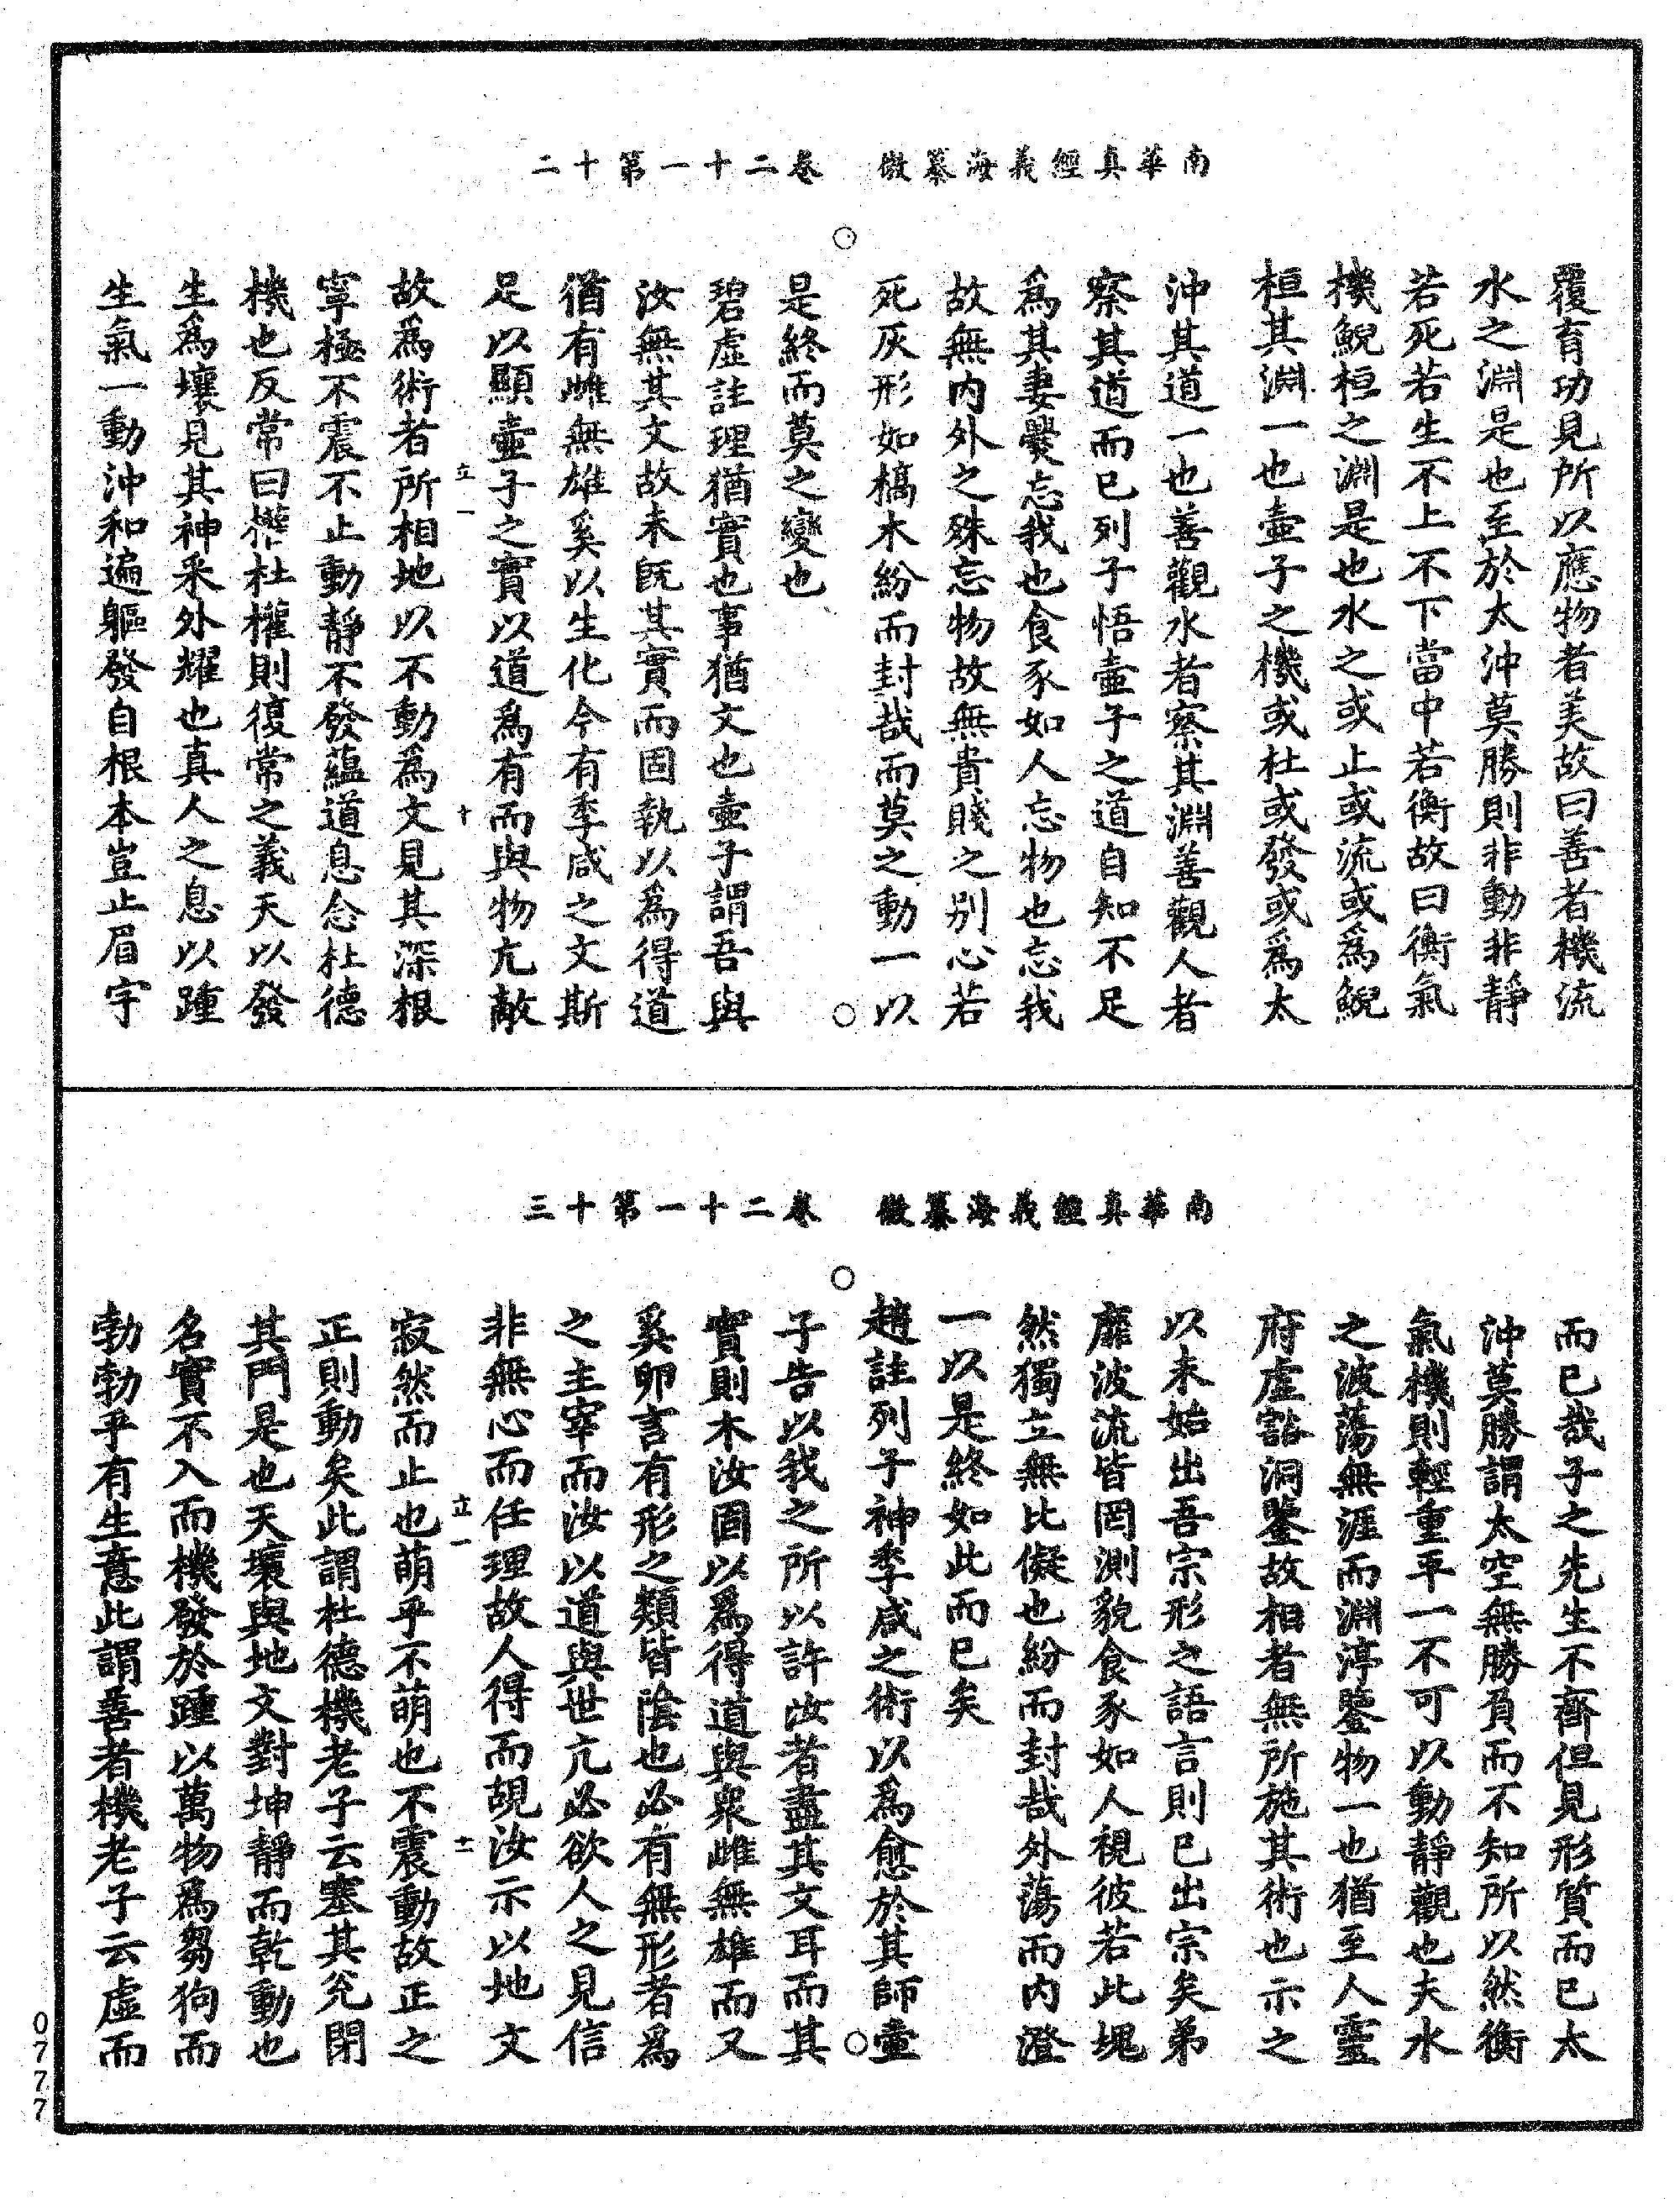 南華真經義海纂微　卷二十一第十二
覆育功見所以應物者美故曰善者機流
水之淵是也至於太沖莫勝則非動非靜
若死若生不上不下當中若衡故曰衡氣
機鯢桓之淵是也水之或止或流或為鯢
桓其淵一也壺子之機或杜或發或為太
沖其道一也善觀水者察其淵善觀人者
察其道而已列子悟壺子之道自知不足
為其妻爨忘我也食豕如人忘物也忘我
故無內外之殊忘物故無貴賤之別心若
死灰形如槁木紛而封哉而莫之動一以
是終而莫之變也
碧虛註理猶實也事猶文也壺子謂吾與
汝無其文故未旣其實而固執以為得道
猶有雌無雄奚以生化今有季咸之文斯
足以顯壺子之實以道為有而與物亢敵
立一　十
故為術者所相地以不動為文見其深根
寧極不震不止動靜不發蘊道息念杜德
機也反常曰權杜權則復常之義天以發
生為壤見其神釆外耀也真人之息以踵
生氣一動沖和遍軀發自根本豈止眉宇
南華真經義海纂微　卷二十一第十三
而已哉子之先生不齊但見形質而已太
沖莫勝謂太空無勝負而不知所以然衡
氣機則輕重平一不可以動靜觀也夫水
之波蕩無涯而淵渟鑒物一也猶至人靈
府虛豁洞鑒故相者無所施其術也示之
以未始出吾宗形之語言則已出宗矣弟
靡波流皆罔測貌食豕如人視彼若此塊
然獨立無比儗也紛而封哉外蕩而內澄
一以是終如此而已矣
趙註列子神季咸之術以為愈於其師壺
子告以我之所以許汝者盡其文耳而其
實則未汝固以為得道與衆雌無雄而又
奚卵言有形之類皆陰也必有無形者為
之主宰而汝以道與世亢必欲人之見信
非無心而任理故人得而覘汝示以地文
立一　十一
寂然而止也萌乎不萌也不震動故正之
正則動矣此謂杜德機老子云塞其兊閉
其門是也天壤與地文對坤靜而乾動也
名實不入而機發於踵以萬物為芻狗而
勃勃乎有生意此謂善者機老子云虛而
0777